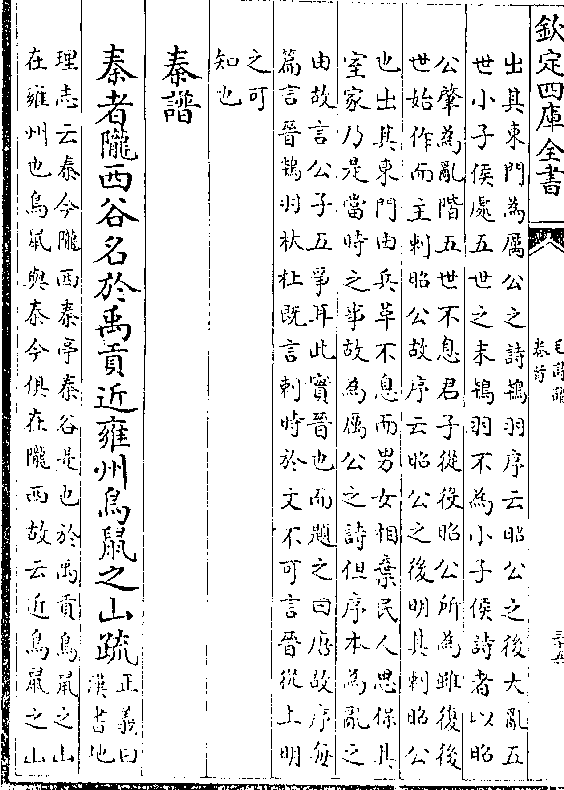 欽定四庫全書
卷首
出其東門為厲公之詩鴇羽序云昭公之後大亂五
世小子侯處五世之末鴇羽不為小子侯詩者以昭
公肇為亂階五世不息君子從役昭公所為雖復後
世始作而主刺昭公故序云昭公之後明其刺昭公
也出其東門由兵革不息而男女相棄民人思保其
室家乃是當時之事故為厲公之詩但序本為亂之
由故言公子五爭耳此實晉也而題之曰唐故序每
篇言晉鴇羽杕杜既言刺時於文不可言晉從上明
之可
知也
秦譜
秦者隴西谷名於禹貢近雍州鳥鼠之山疏
正義曰
漢書地
理志云秦今隴西秦亭秦谷是也於禹貢鳥鼠之山
在雍州也鳥鼠與秦今俱在隴西故云近鳥鼠之山